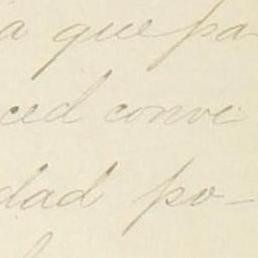 a que pa-
ced conve
dad po-